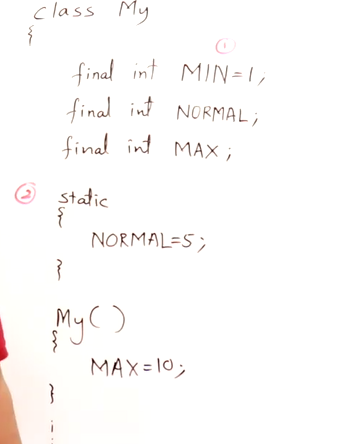 class My
{
①
final int MIN=1,
final int NORMAL;
final int MAX;
② static
{
NORMAL=5;
}
My()
{
MAX=10;
}